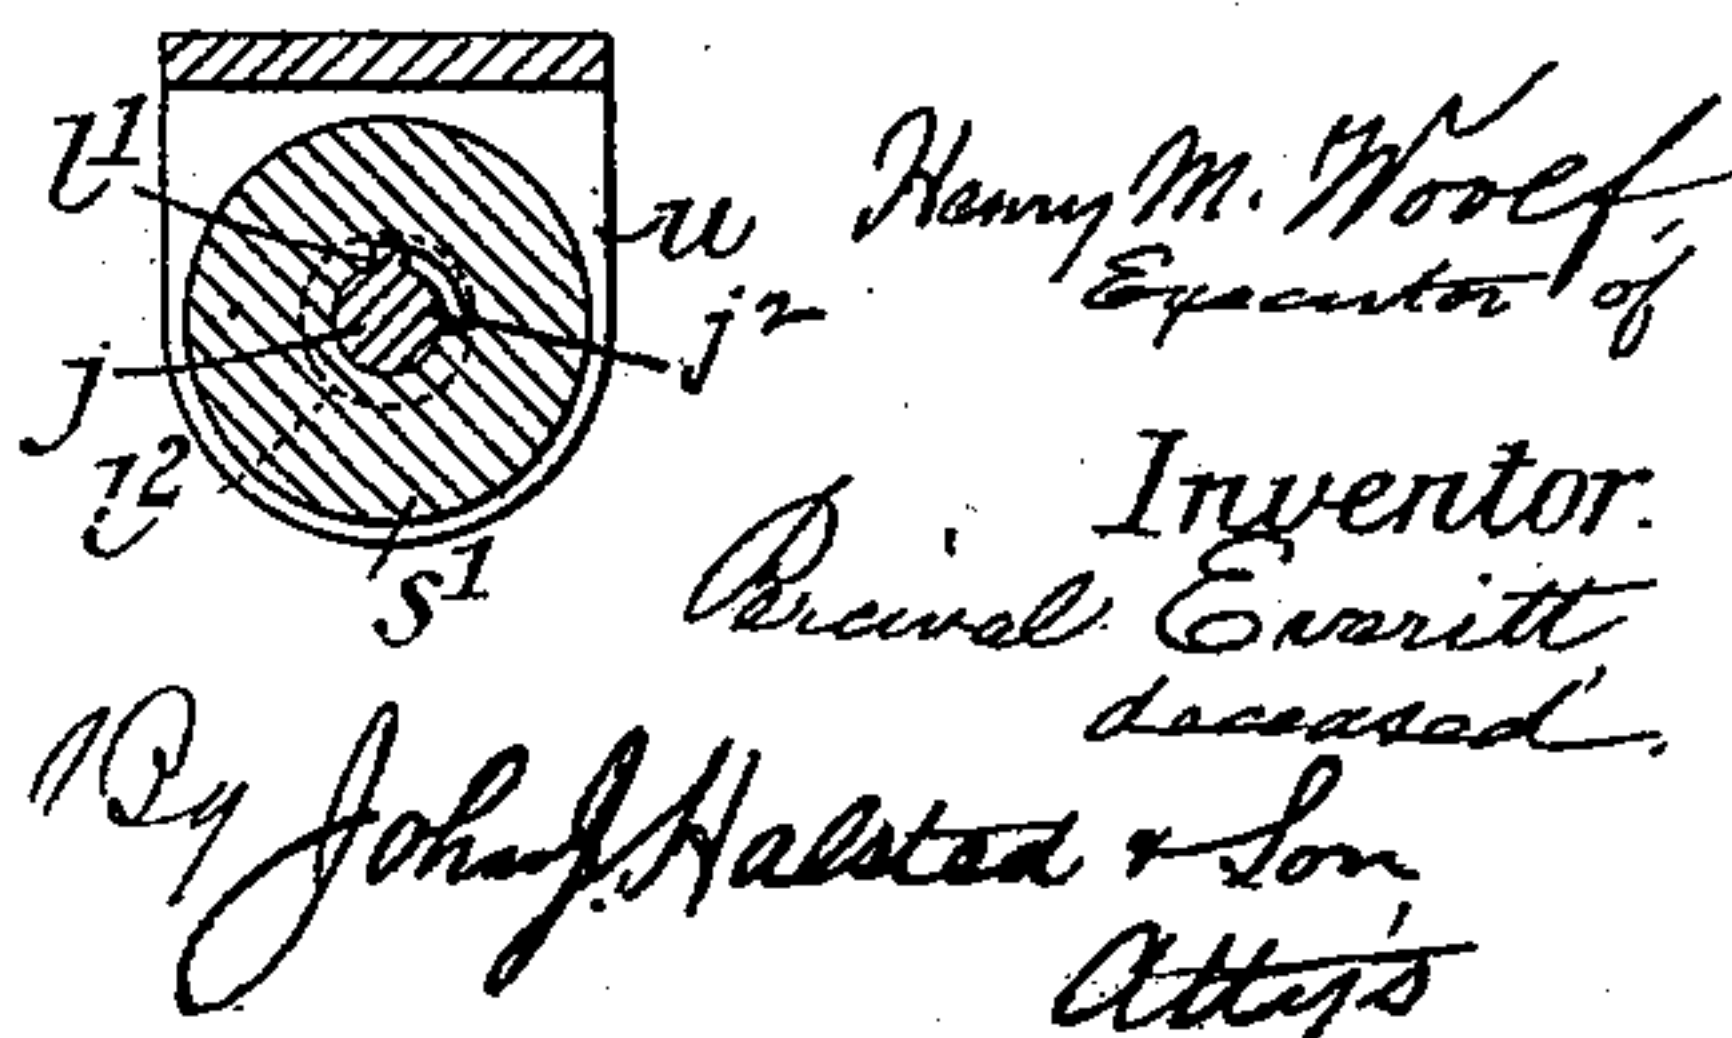 l¹
u
j²
j
l²
s¹
Henry M. Woolf,
Executor of
Inventor.
Percival Everitt
deceased.
By John J. Halsted & Son
Atty's